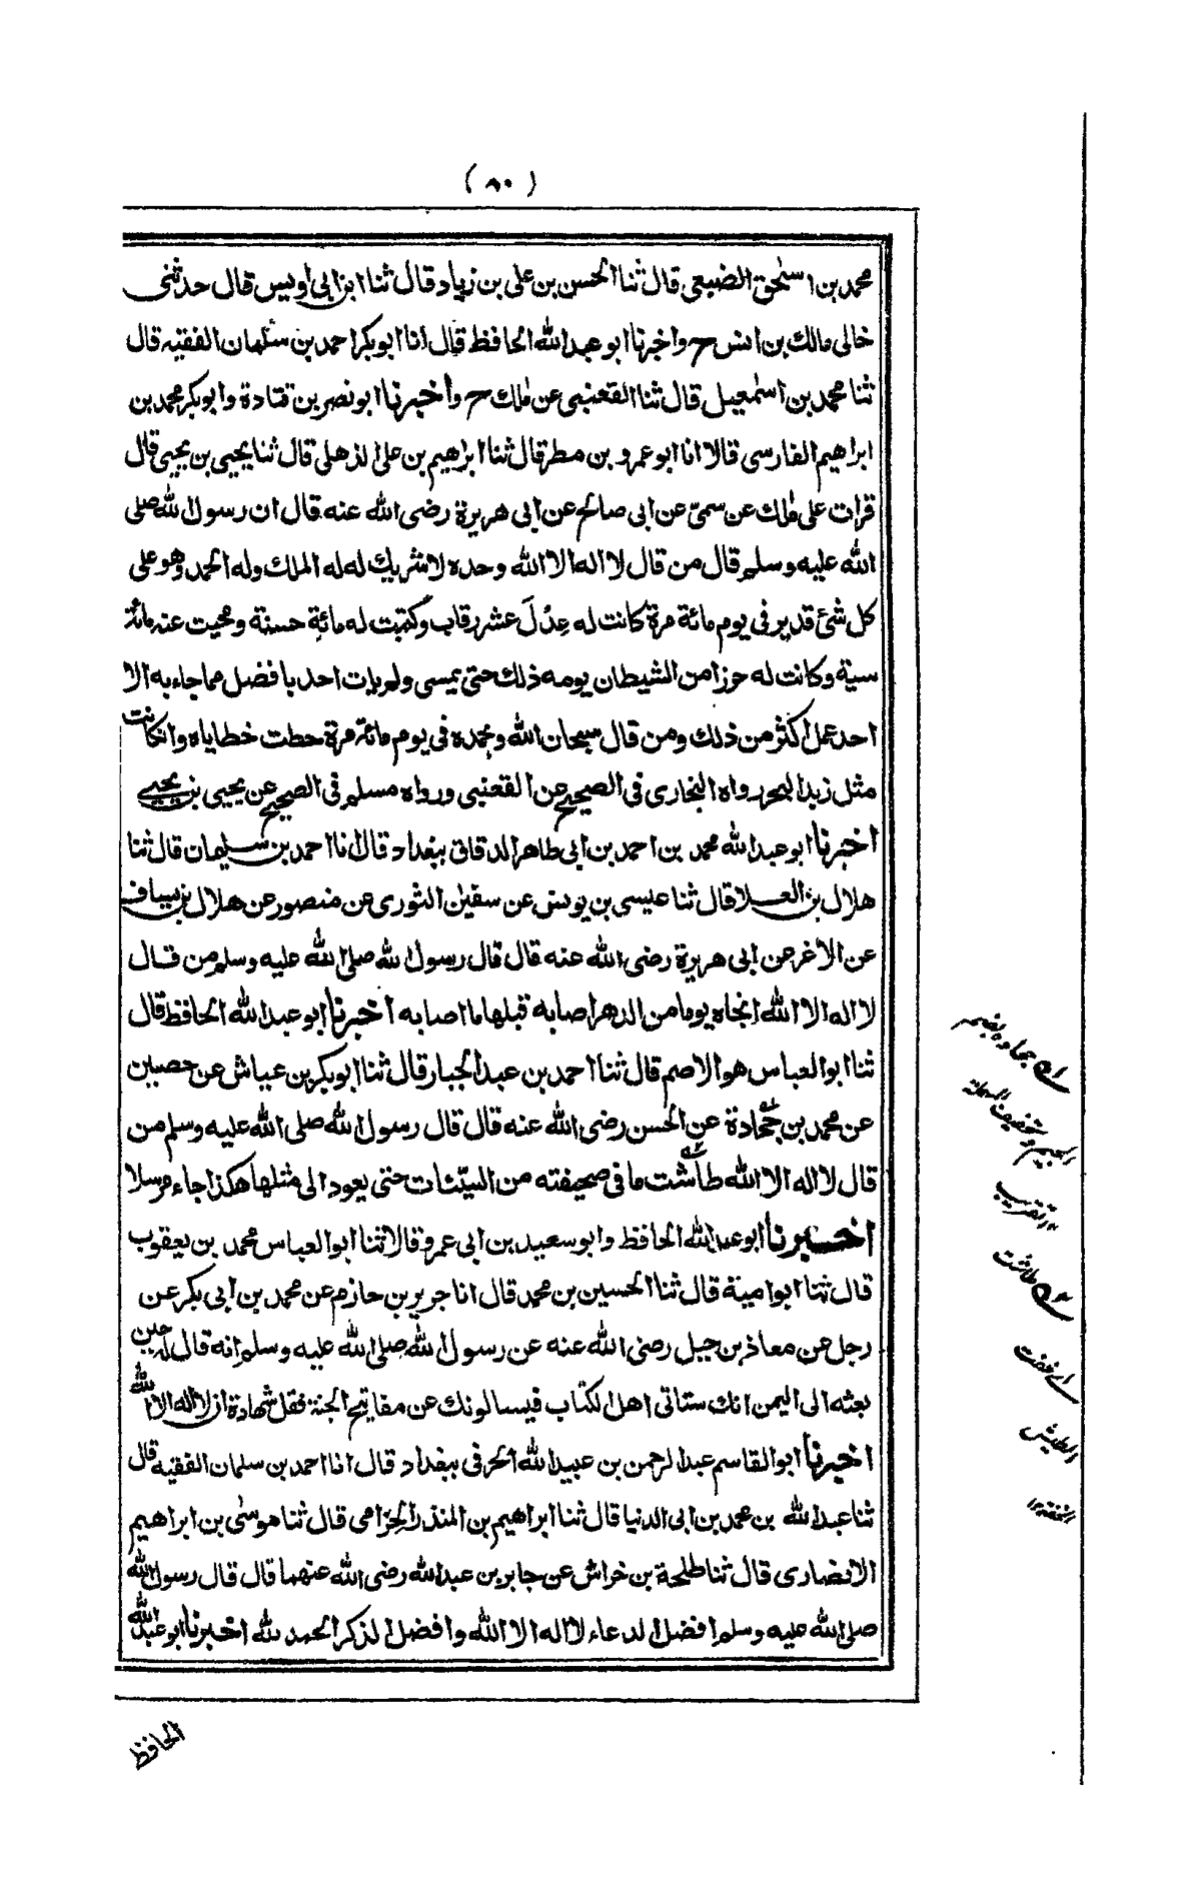 (٨٠)
محمد بن اسحٰق الضبعي قال ثنا الحسن بن علي بن زياد قال ثنا ابن ابي اويس قال حدثني
خالي مالك بن انس ح واخبرنا ابو عبد الله الحافظ قال انا ابو بكر احمد بن سلمان الفقيه قال
ثنا محمد بن اسمٰعيل قال ثنا القعنبي عن مٰلك ح واخبرنا ابو نصر بن قتادة وابو بكر محمد بن
ابراهيم الفارسي قالا انا ابو عمرو بن مطر قال ثنا ابراهيم بن علي الذهلي قال ثنا يحيى بن يحيى قال
قرات على مٰلك عن سميّ عن ابي صالح عن ابي هريرة رضى الله عنه قال ان رسول الله صلى
الله عليه وسلم قال من قال لا اله الا الله وحده لا شريك له له الملك وله الحمد وهو على
كل شئ قدير في يوم مائة مرة كانت له عِدْلَ عشر رقاب وكتبت له مائة حسنة ومحيت عنه مائة
سيئة وكانت له حرزا من الشيطان يومه ذلك حتى يمسي ولم يات احد بافضل مما جاء به الا
احد عمل اكثر من ذلك ومن قال سبحان الله وبحمده في يوم مائة مرة حطت خطاياه وان كانت
مثل زبد البحر رواه البخاري في الصحيح عن القعنبي ورواه مسلم في الصحيح عن يحيى بن يحيى
اخبرنا ابو عبد الله محمد بن احمد بن ابي طاهر الدقاق ببغداد قال انا احمد بن سليمان قال ثنا
هلال بن العلا قال ثنا عيسى بن يونس عن سفيٰن الثوري عن منصور عن هلال بن يساف
عن الأغر عن ابي هريرة رضى الله عنه قال قال رسول الله صلى الله عليه وسلم من قال
لا اله الا الله انجاه يوما من الدهر اصابه قبلها ما اصابه اخبرنا ابو عبد الله الحافظ قال
ثنا ابو العباس هو الاصم قال ثنا احمد بن عبد الجبار قال ثنا ابو بكر بن عياش عن حصين
عن محمد بن جُحادة عن الحسن رضى الله عنه قال قال رسول الله صلى الله عليه وسلم من
قال لا اله الا الله طاشت ما في صحيفته من السيّئات حتى يعود الى مثلها هكذا جاء مرسلا
اخبرنا ابو عبد الله الحافظ وابو سعيد بن ابي عمرو قالا ثنا ابو العباس محمد بن يعقوب
قال ثنا ابو امية قال ثنا الحسين بن محمد قال انا جرير بن حازم عن محمد بن ابي بكر عن
رجل عن معاذ بن جبل رضى الله عنه عن رسول الله صلى الله عليه وسلم انه قال له حين
بعثه الى اليمن انك ستاتي اهل الكتاب فيسالونك عن مفاتيح الجنة فقل شهادة ان لا اله الا الله
اخبرنا ابو القاسم عبد الرحمن بن عبيد الله الحرفي ببغداد قال انا احمد بن سلمان الفقيه قال
ثنا عبد الله بن محمد بن ابي الدنيا قال ثنا ابراهيم بن المنذر الحزامي قال ثنا موسٰى بن ابراهيم
الانصاري قال ثنا طلحة بن خراش عن جابر بن عبد الله رضى الله عنهما قال قال رسول الله
صلى الله عليه وسلم افضل الدعاء لا اله الا الله وافضل الذكر الحمد لله اخبرنا ابو عبد الله
الحافظ
بضم
الجيم وتخفيف المهملة
التقريب
طاشت
اى خفت
الطيش